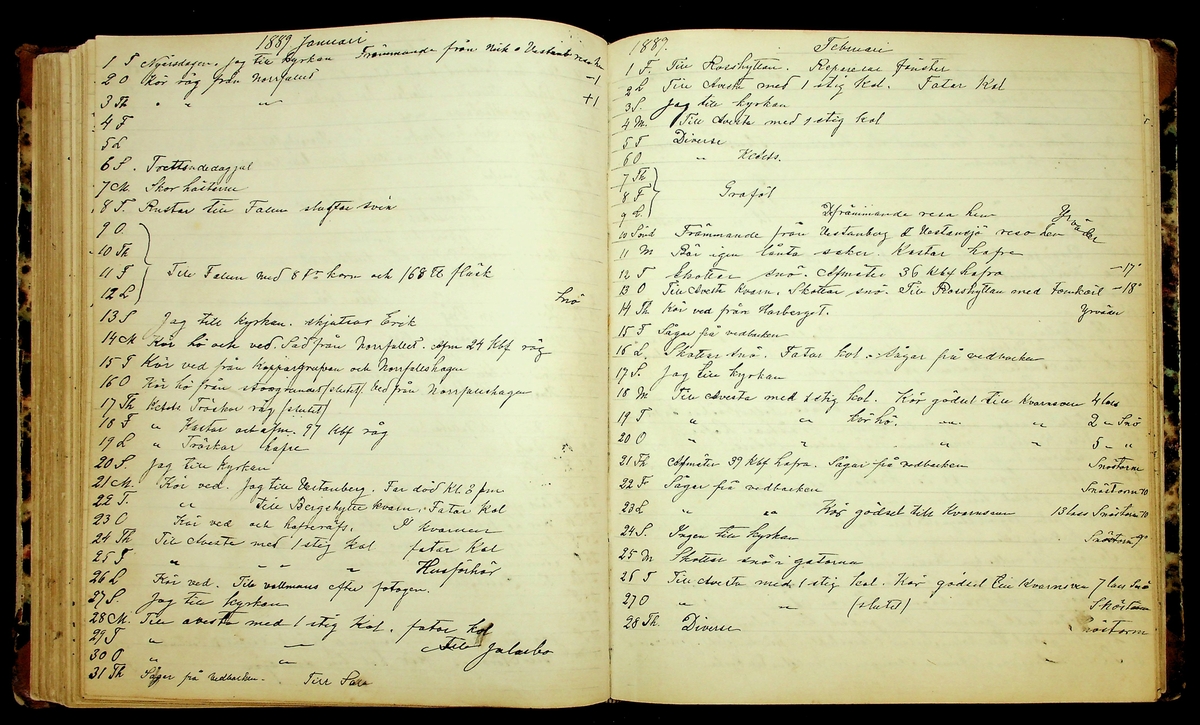 1889 Januari
1 T Nyårsdagen. Jag till kyrkan Främmande från
2 O Kör råg från Norrfallet -1
3 Th " " " +1
4 F
5 L
6 S. Trettondedagjul
7 M. Skor hästarne
8 T. Rustar till Falun slagtar svin
9 O.
10 Th
11 F Till Falun med 8 korn och 168 fläsk
12 L Snö
13 S Jag till kyrkan. skjutsar Erik
14 M Kör hö och ved. Säd från Norrfallet. Afm 24 Kbf råg
15 T Kör ved från Koppargrufvan och Norrfallshagen
16 O Kör hö från (slutet) Ved från Norrfallshagen
17 Th Tröskar råg (slutet)
18 F " Kastar och afm. 97 Kbf råg
19 L " Tröskar hafre
20 S. Jag till kyrkan
21 M. Kör ved. Jag till Vestanberg. Far död Kl. 8 fm
22 T. " Till Bergshytte kvarn, Fatar Kol
23 O Kör ved och På kvarnen
24 Th Till Avesta med 1 stig Kol fatar Kol
25 F " " " " Husförhör
26 L Kör ved. Till efter fotogen.
27 S. Jag till kyrkan
28 M. Till avesta med 1 stig Kol. fatar kol
29 T " Till Jularbo
30 O " "
31 Th Sågar på vedbacken. Till Sala
1889. Februari
1 F. Till Rosshyttan. Reparerar fönster
2 L Till Avesta med 1 stig Kol. Fatar Kol
3 S. Jag till kyrkan
4 M. Till Avesta med 1 stig kol
5 T Diverse
6 O "
7 Th
8 F Graföl
9 L. främmande resa hem Yrväder
10 Sönd Främmande från Vestanberg & Vestansjö resa hem
11 M Bär igen lånta saker. Kastar hafre
12 T Skottar snö. Afmäter 36 Kbf hafra -17°
13 O Till Avesta kvarn. Skottar snö. Till Rosshyttan med -18°
14 Th Kör ved från Harberget. Yrväder
15 F Sågar på vedbacken
16 L. Skottar snö. Fatar kol. Sågar på vedbacken
17 S. Jag till kyrkan
18 M Till Avesta med 1 stig kol. Kör gödsel till kvarnsven 4 lass
19 T " " kör hö. " " 2 " Snö
20 O " " " " 5 " "
21 Th Afmäter 39 Kbf hafra. Sågar på vedbacken Snöstorm
22 F Sågar på vedbacken Snöstorm 70
23 L " " Kör gödsel till Kvarnsven 13 lass Snöstorm 70
24 S. Ingen till kyrkan Snöstorm 9°
25 M Skottar snö i gatorna
26 T Till Avesta med 1 stig kol. Kör gödsel till Kvarnsven 7 lass Snö
27 O " " (slutet) Snöstorm
28 Th. Diverse Snöstorm